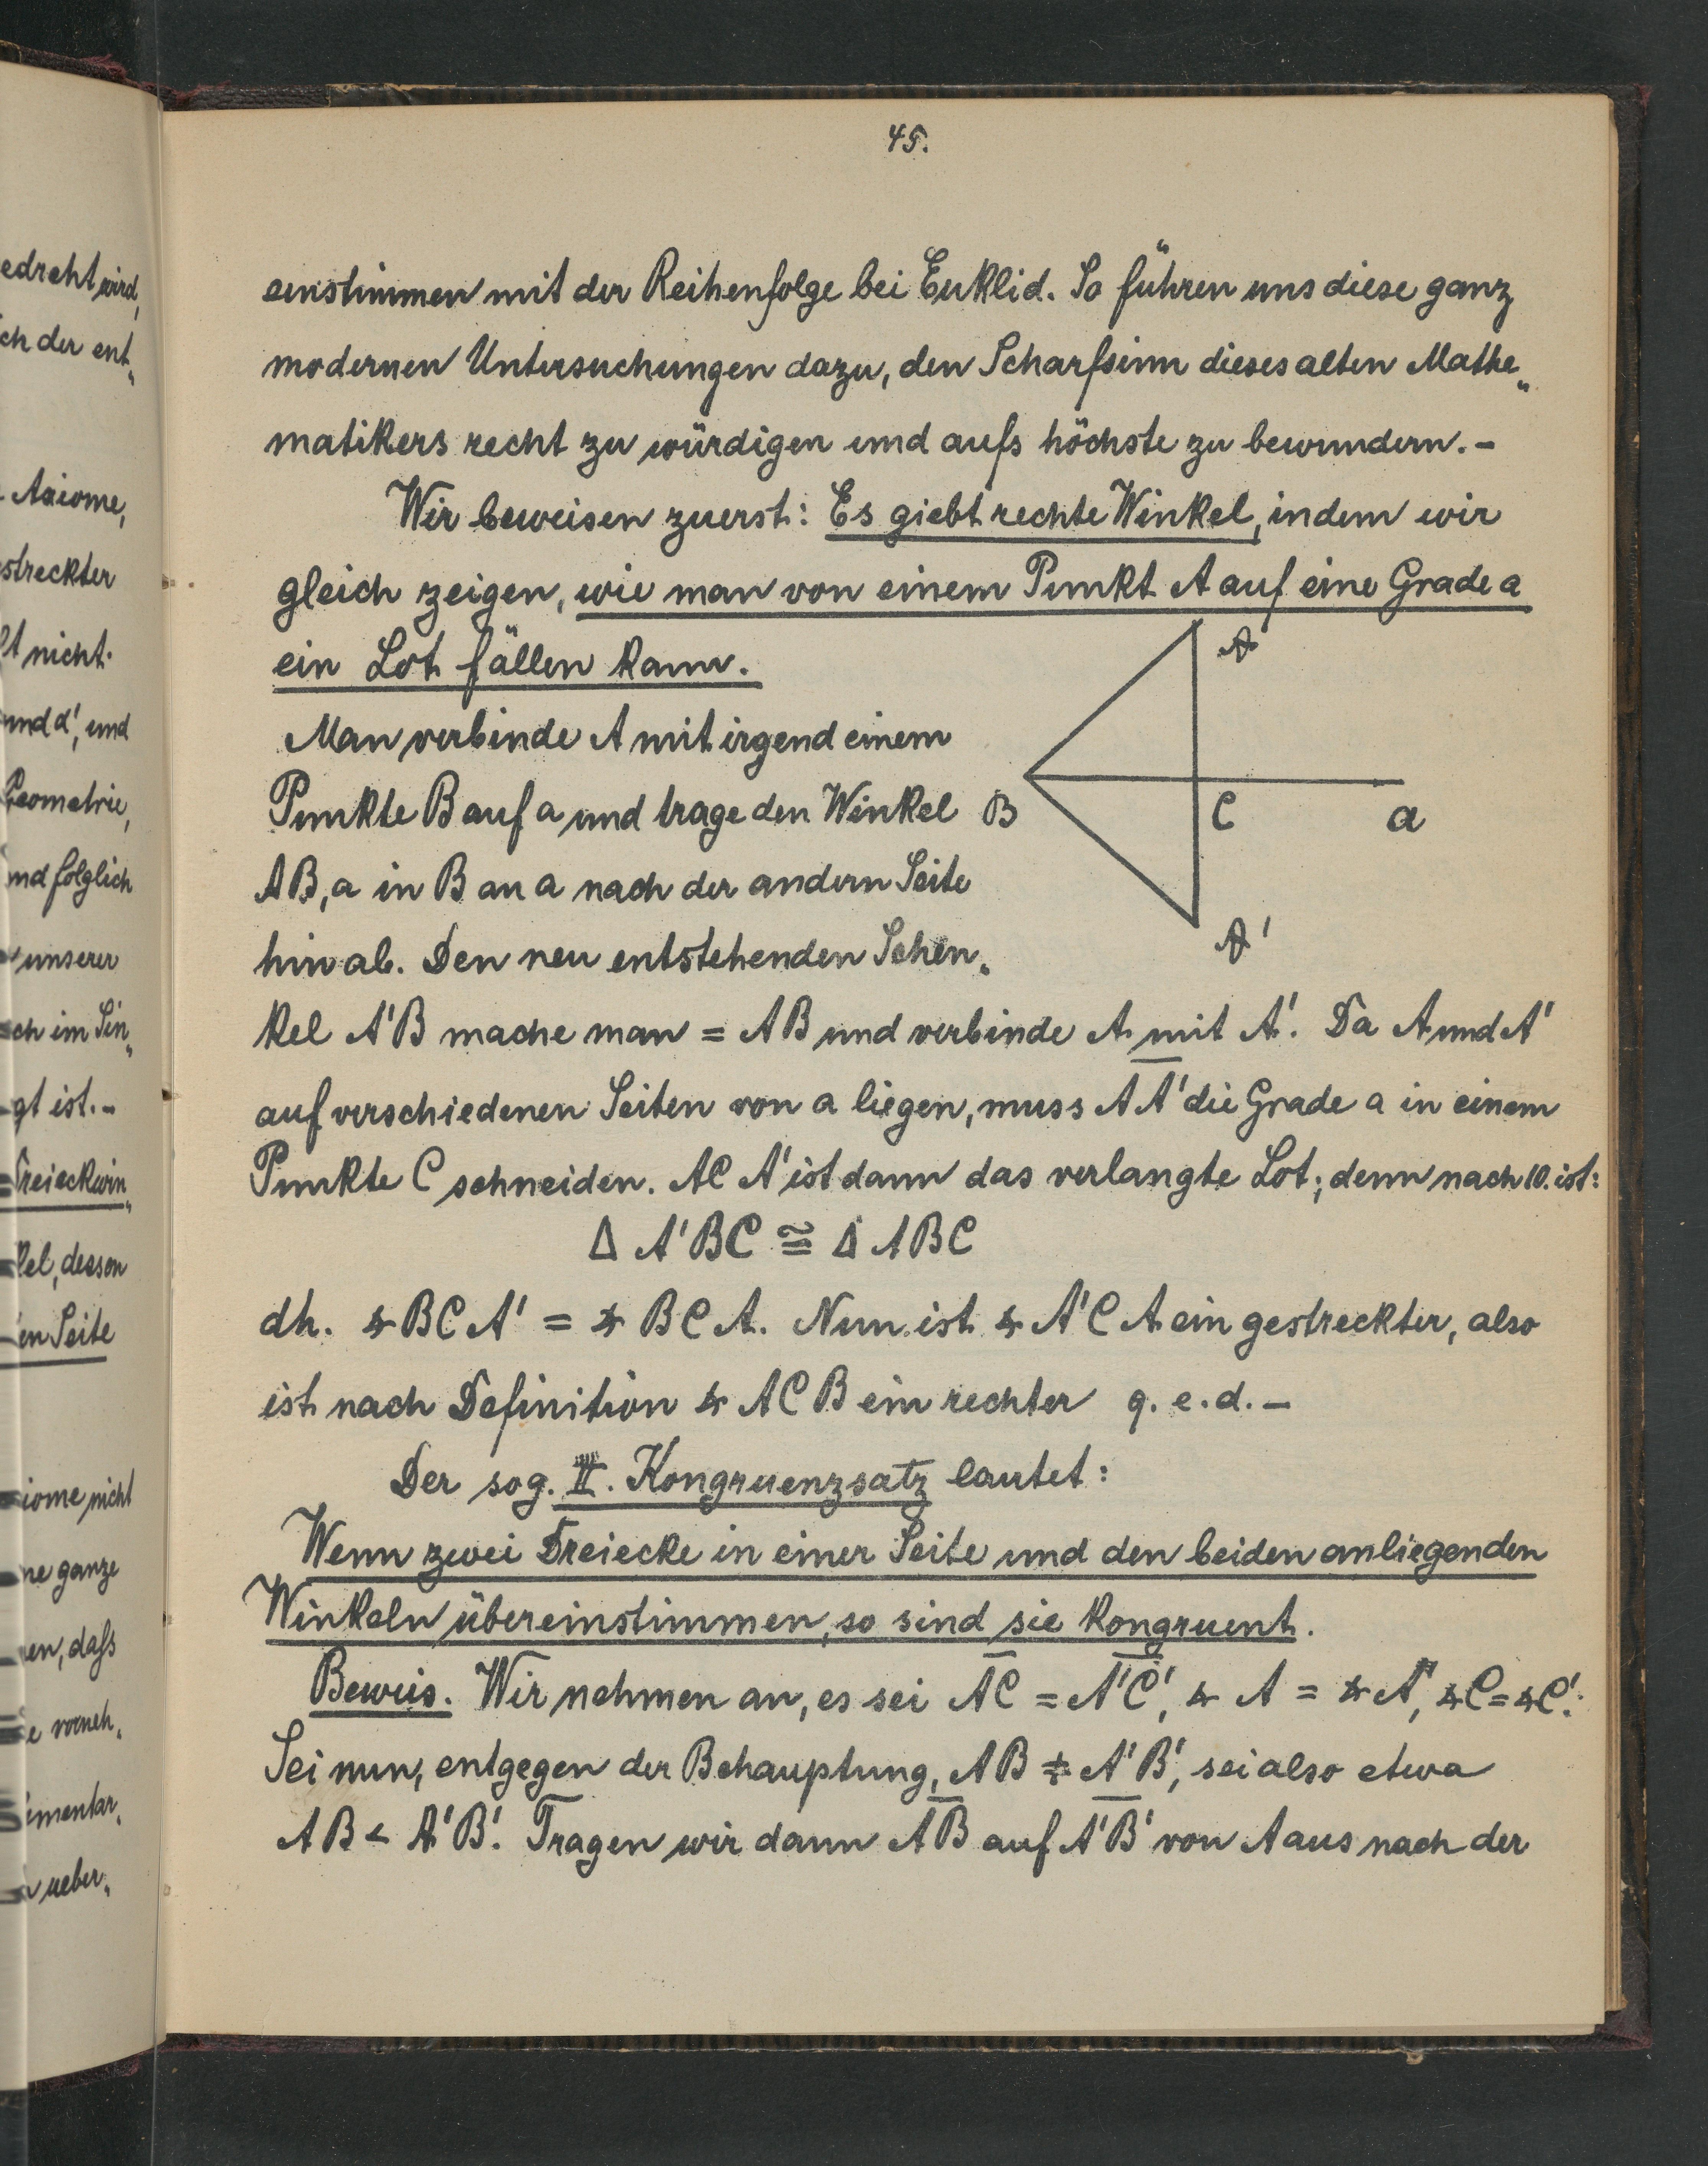 45.
einstimmen mit der Reihenfolge bei Euklid. So führen uns diese ganz
modernen Untersuchungen dazu, den Scharfsinn dieses alten Mathe„
matikers recht zu würdigen und aufs höchste zu bewundern. –
Wir beweisen zuerst: Es giebt rechte Winkel, indem wir
gleich zeigen, wie man von einem Punkt A auf eine Grade a
ein Lot fällen kann.
Man verbinde A mit irgend einem
Punkte B auf a und trage den Winkel
AB, a in B an a nach der andern Seite
hin ab. Den neu entstehenden Schen„
kel A'B mache man = AB und verbinde A mit A'. Da A und A'
auf verschiedenen Seiten von a liegen, muss A̅A̅' die Grade a in einem
Punkte C schneiden. ACA' ist dann das verlangte Lot; denn nach 10. ist:
Δ A'BC ≅ Δ ABC
dh. ∢ BCA' = ∢ BCA. Nun ist ∢ A'CA ein gestreckter, also
ist nach Definition ∢ ACB ein rechter q. e. d. –
Der sog. II. Kongruenzsatz lautet:
Wenn zwei Dreiecke in einer Seite und den beiden anliegenden
Winkeln übereinstimmen, so sind sie kongruent.
Beweis. Wir nehmen an, es sei A̅C̅ = A̅'C̅', ∢ A = ∢ A', ∢ C = ∢ C'.
Sei nun, entgegen der Behauptung, AB ≠ A'B', sei also etwa
AB < A'B'. Tragen wir dann A̅B̅ auf A̅'B̅' von A aus nach der
A
B
C
a
A'
edreht wird,
ch der ent„
Axiome,
streckter
lt nicht.
und a', und
Geometrie,
nd folglich
unserer
ch im Sin„
gt ist. –
Dreieckwin„
kel, dessen
en Seite
iome nicht
ne ganze
en, daſs
e vorneh„
ementar„
ueber„